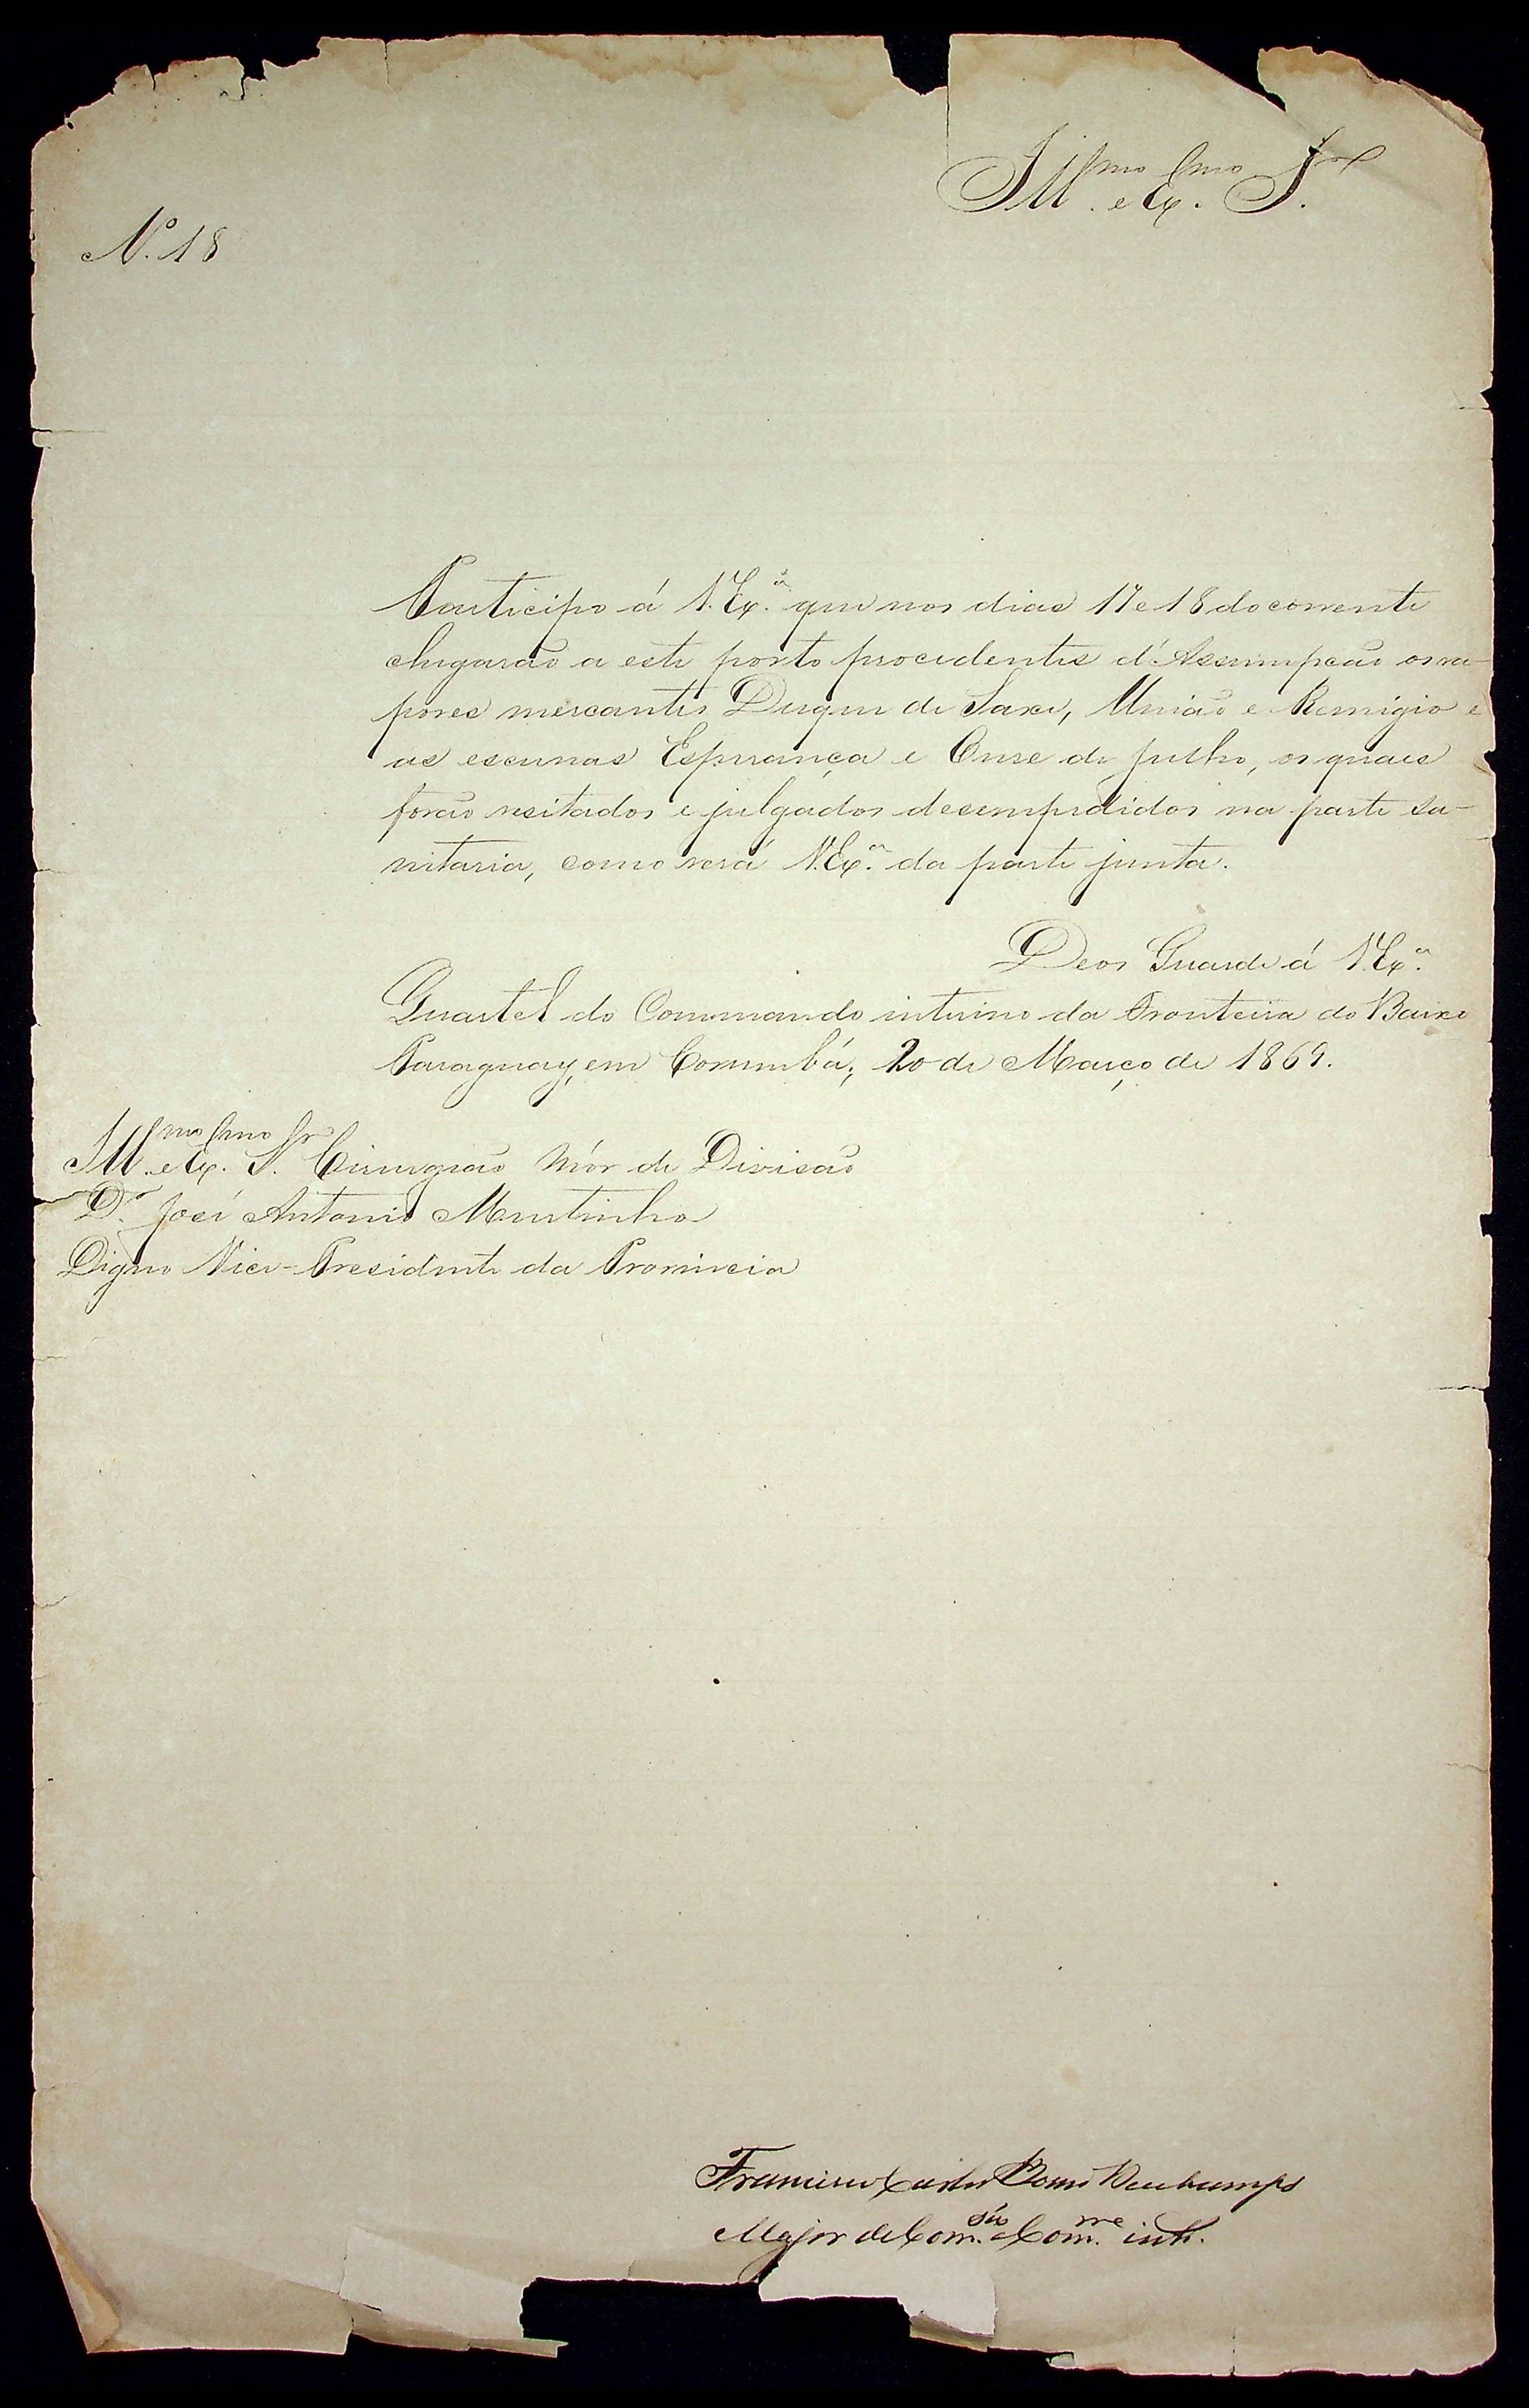 Ill.mo e Ex.mo Sr.
N.º 18
Participo á V. Ex.ª que nos dias 17 e 18 do corrente
chegarão a este porto procedentes d'Assumpção os va-
pores mercantes Duque de Saxe, União e Remigio e
as escunas Esperança e Onse de Julho, os quaes
forão visitados e julgados desempedidos na parte sa-
nitaria, como verá V. Ex.ª da parte junta.
Deos Guarde á V. Ex.ª
Quartel do Commando interino da Fronteira do Baixo
Paraguay, em Corumbá, 20 de Março de 1869.
Ill.mo e Ex.mo Sr. Cirurgião Mór de Divisão
D.r José Antonio Murtinho
Digno Vice-Presidente da Provincia
Francisco Bueno Deschamps
Major de Com.são Com.me int.